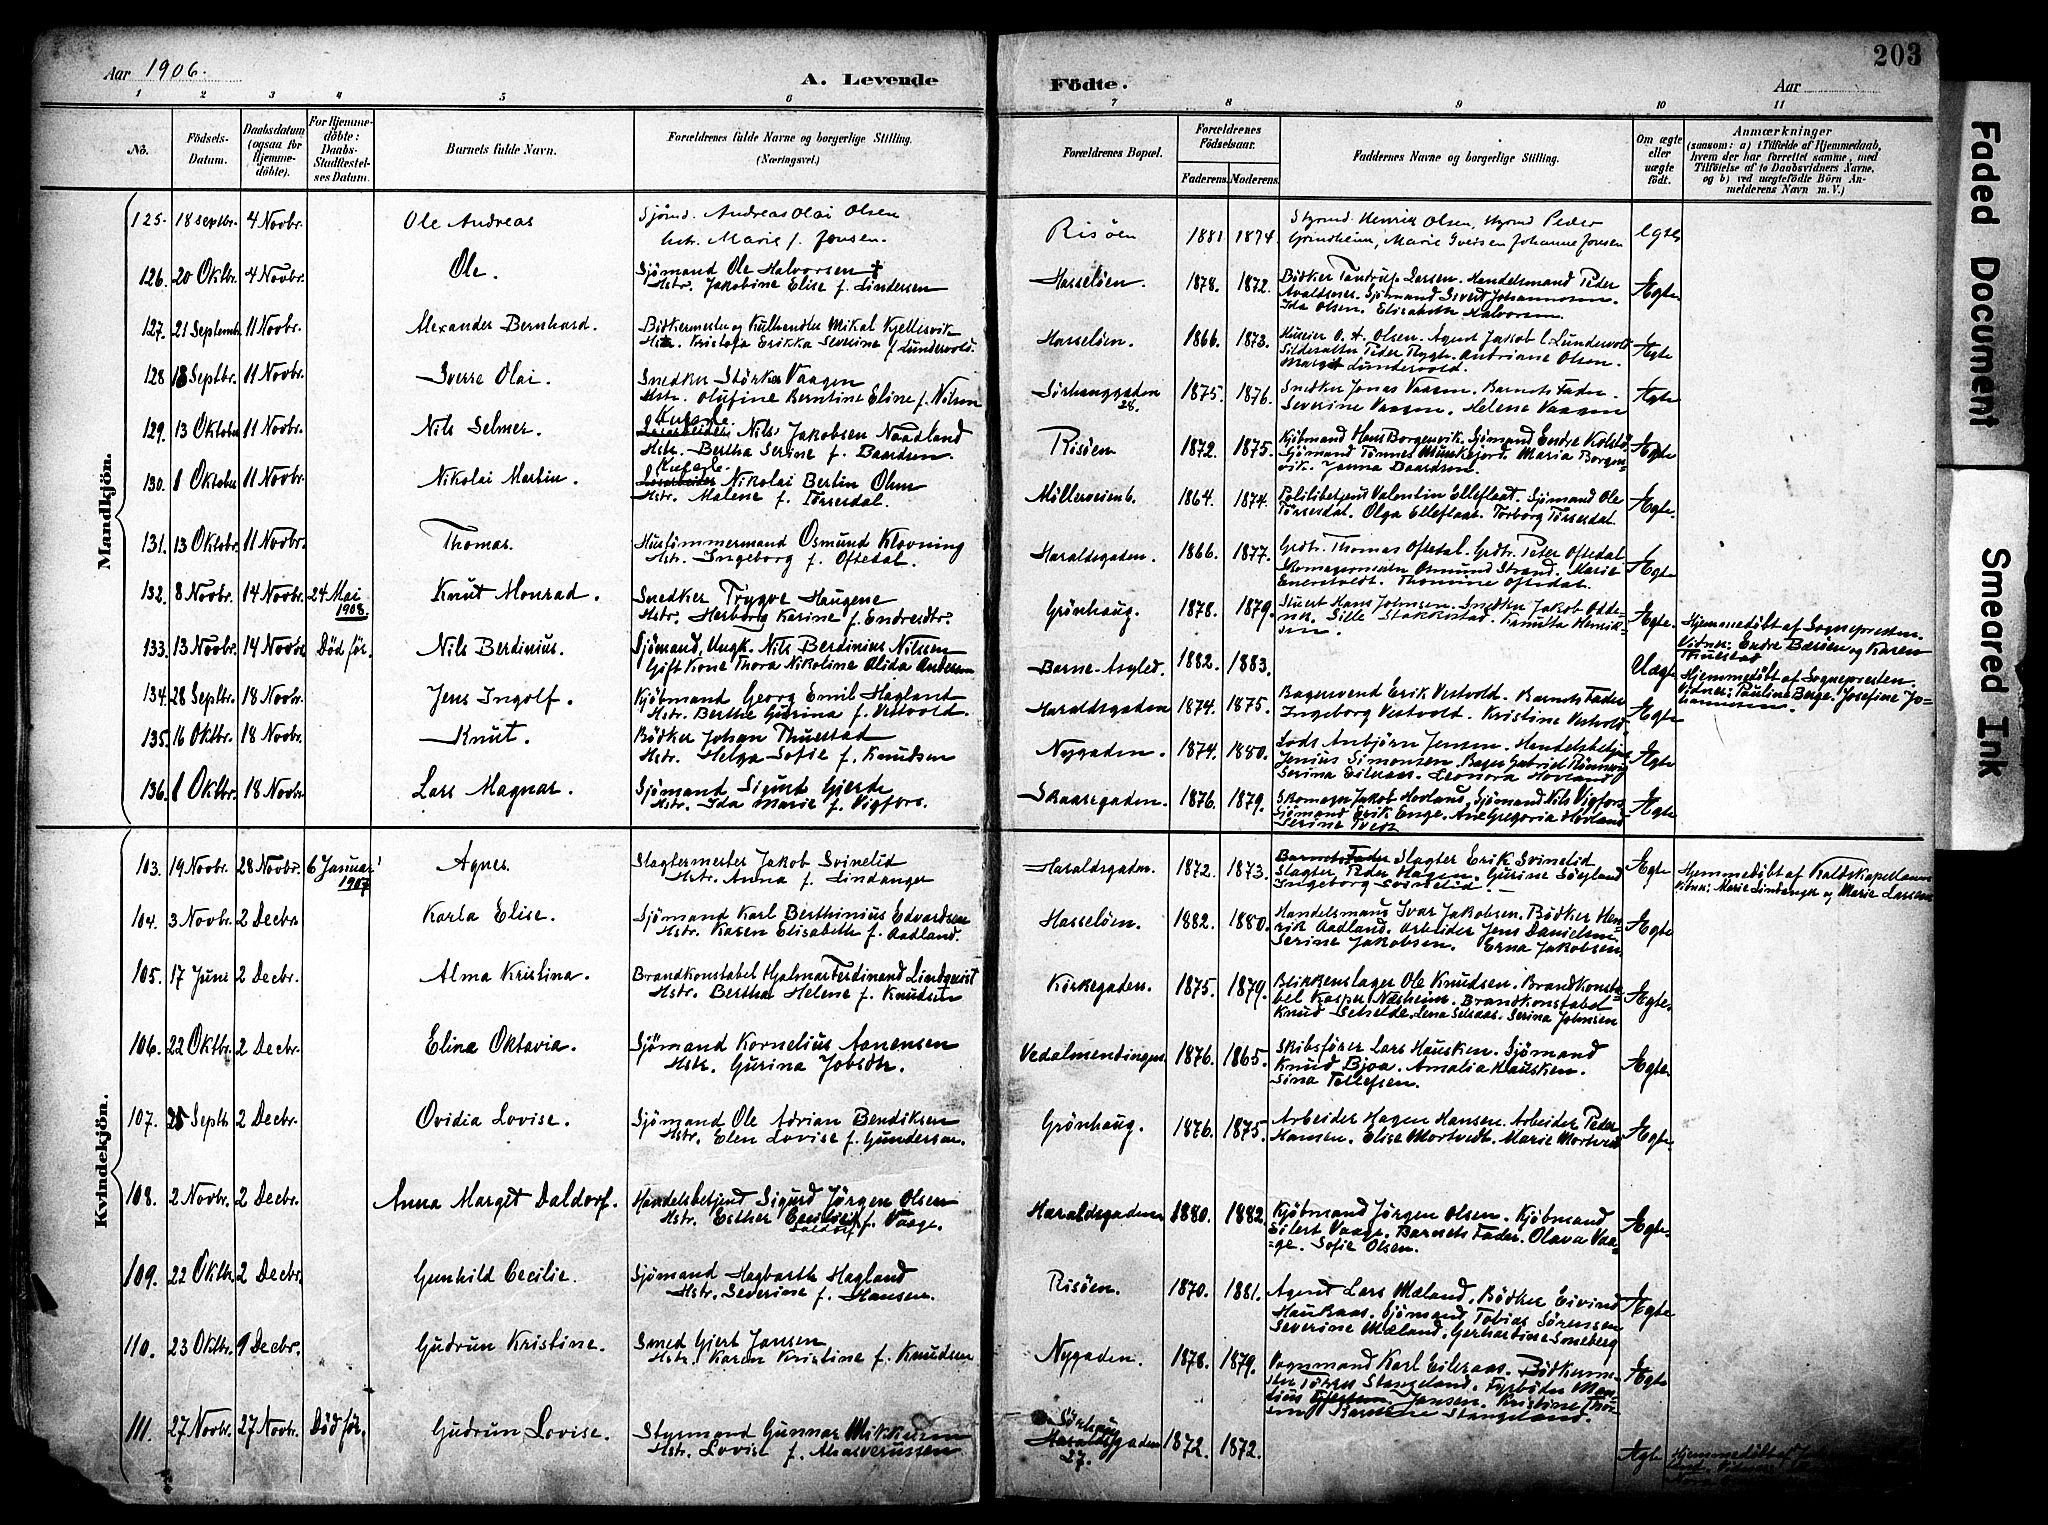 203
Aar 1906.
A. Levende Födte.
Aar
1 2 3 4 5 6 7 8 9 10 11
No.
Födsels-Datum.
Daabsdatum (ogsaa for Hjemme-döbte).
For Hjemme-döbte: Daabs-Stadfæstel-ses Datum.
Barnets fulde Navn.
Forældrenes fulde Navne og borgerlige Stilling.
(Næringsvei.)
Forældrenes Bopæl.
Forældrenes Födselsaar.
Faderens. Moderens.
Faddernes Navne og borgerlige Stilling.
Om ægte eller uægte födt.
Anmærkninger
(saasom: a) i Tilfælde af Hjemmedaab, hvem der har forrettet samme, med Tilföielse af to Daabsvidners Navne, og b) ved uægtefödte Börn An-melderens Navn m. V.)
Mandkjön.
125. 18 Septbr. 4 Novbr. Ole Andreas
Sjömd. Andreas Olai Olsen
Hstr. Marie f. Jonsen.
Risöen 1881 1874.
Styrmd. Henrik Olsen, Styrmd Peder
Grindheim, Marie Johanne Jonsen
126. 20 Oktbr. 4 Novbr. Ole.
Sjömand Ole Halvorsen †
Hstr. Jakobine Elise f. Lindersen
Hasselöen. 1878. 1872.
Bödker Larsen. Handelsmand Peder
Sjömand Sivert Johannesen.
Ida Olsen. Elisabeth Halvorsen.
Ægte
127. 21 Septembr 11 Novbr. Alexander Bernhard.
Bödkermester og Kulhandler Mikal Kjellesvik
Hstr. Kristofa Erikka Severine f. Lundervold.
Hasselöen. 1866. 1873.
O. A. Olsen. Agent Jakob C. Lundervold
Peder Andriane Olsen.
Lundervold.
Ægte
128 13 Septbr. 11 Novbr. Sverre Olai.
Snedker Störker Vaagen
Hstr. Olufine Berntine Eline f. Nilsen
Sörhauggaden 28. 1875. 1876.
Snedker Jonas Vaagen. Barnets Fader.
Severine Vaagen. Helene Vaagen
Ægte
129. 13 Oktober 11 Novbr. Nils Selmer.
Nils Jakobsen Naadland
Hstr. Bertha Serine f. Baardsen.
Risöen 1872. 1875.
Kjöbmand Hans Borgenvik. Sjömand Endre
Sjömand Tönnes Munkejord. Maria Borgen-
vik. Janna Baardsen.
Ægte
130. 8 Oktober 11 Novbr. Nikolai Martin.
Nikolai Bertin Ohm
Hstr. Malene f. Törresdal.
Möllerveien 6. 1864. 1874.
Politibetjent Valentin Elleflaat. Sjömand Ole
Törresdal. Olga Elleflaat. Torborg Törresdal.
Ægte.
131. 13 Oktobr. 11 Novbr. Thomas.
Hustömmermand Osmund Klovning
Hstr. Ingeborg f. Oftedal.
Haraldsgaden. 1866. 1877.
Grdbr. Thomas Oftedal. Grdbr. Peter Oftedal
Skomagermester Osmund Strand. Marie
Thomine Oftedal.
Ægte
132. 8 Novbr. 14 Novbr. 24 Mai 1908. Knut Monrad.
Snedker Trygve Haugene
Hstr. Herborg Karine f. Endresdtr.
Grönhaug. 1878. 1879.
Hans Johnsen. Snedker Jakob Odde-
Sille Stakkestad. Kanutta Henrik-
sen.
Ægte.
Hjemmedöbt af Sognepresten.
Vidner: Endre og Karen
Thuestad
133. 13 Novbr. 14 Novbr Död för. Nils Berdinius.
Sjömand, Ungk. Nils Berdinius Nilssen
Gift Kone Thora Nikoline Olida Andersen
Börne-Asyled. 1882. 1883.
Uægte
Hjemmedöbt af Sognepresten.
Vidner: Pauline Berge. Josefine Jo-
hannesen.
134. 28 Septbr. 18 Novbr. Jens Ingolf.
Kjöbmand Georg Emil Hagland
Hstr. Berthe Gurina f. Vestvold.
Haraldsgaden 1874. 1875.
Bagersvend Erik Vestvold. Barnets Fader
Ingeborg Vestvold. Kristine Vestvold
Ægte
135. 16 Oktbr. 18 Novbr. Knut.
Bödker Johan Thuestad
Hstr. Helga Sofie f. Knudsen
Nygaden. 1874. 1880.
Lods Anbjörn Jensen. Handelsbetjent
Jenius Simonsen. Bager Gabriel
Serina Eileraas. Leonora Hovland
Ægte
136. 8 Oktbr. 18 Novbr. Lars Magnar.
Sjömand Sigurd Gjerde
Hstr. Ida Marie f. Vigfors.
Skaaregaden. 1876. 1879.
Skomager Jakob Hovland, Sjömand Nils Vigfors
Sjömand Erik Enge. Ane Gregoria Hovland
Serine Tveit
Ægte
Kvindekjön.
103. 19 Novbr. 28 Novbr. 6 Januar 1907 Agnes.
Slagtermester Jakob Svinelid
Hstr. Anna f. Lindanger
Haraldsgaden. 1872. 1873.
Barnets Fader Slagter Erik Svinelid
Slagter Peder Hagen. Gurine
Ingeborg Svinelid.
Ægte
Hjemmedöbt af Kaldskapellanen
Vidner: Marie Lindanger og Marie Larsen
104. 3 Novbr. 2 Decbr. Karla Elise.
Sjömand Karl Berthinius Edvardsen
Hstr. Karen Elisabeth f. Aadland.
Hasselöen. 1882. 1880.
Handelsmand Ivar Jakobsen. Bödker Hen-
rik Aadland. Arbeider Jens Danielsen
Serine Jakobsen. Erna Jakobsen
Ægte
105. 17 Juni 2 Decbr. Alma Kristina.
Brandkonstabel Hjalmar Ferdinand Lindqvist
Hstr. Bertha Helene f. Knudsen
Kirkegaden. 1875. 1879.
Blikkenslager Ole Knudsen. Brandkonsta-
bel Kasper Næsheim. Brandkonstabel
Knud Lena Serina Johnsen
Ægte.
106. 22 Oktbr. 2 Decbr. Elina Oktavia.
Sjömand Kornelius Aanensen
Hstr. Gurina Jobsdtr.
1876. 1865.
Skibsförer Lars Hausken. Sjömand
Knud Bjoa. Amalia Hausken.
Sina Tollefsen.
Ægte.
107. 25 Septbr 2 Decbr. Ovidia Lovise.
Sjömand Ole Adrian Bendiksen
Hstr. Elen Lovise f. Gundersen.
Grönhaug. 1876. 1875.
Arbeider Hagen Hansen. Arbeider Peder
Hansen. Elise Mortvedt. Marie Mortvedt
Ægte
108. 2 Novbr. 2 Decbr. Anna Marget Daldorf.
Handelsbetjend Sigurd Jörgen Olsen
Hstr. Esther Cecilie Daldorf f. Vaage.
Haraldsgaden 1880. 1882.
Kjöbmand Jörgen Olsen. Kjöbmand
Eilert Vaage. Barnets Fader. Olava Vaa-
ge. Sofie Olsen.
Ægte.
109. 22 Oktbr. 2 Decbr. Gunhild Cecilie.
Sjömand Hagbarth Hagland
Hstr. Severine f. Hansen.
Risöen. 1870. 1881.
Agent Lars Mæland. Bödker Eivind
Haukaas. Sjömand Tobias Sörensen
Severine Mæland. Gerhardine Soneberg
Ægte
110. 23 Oktbr. 9 Decbr. Gudrun Kristine.
Smed Gjert Jansen
Hstr. Karen Kristine f. Knudsen
Nygaden. 1878. 1879.
Vognmand Karl Eileraas. Bödkerme-
ster Stangeland. Fyrböder
Jansen. Kristine
Stangeland.
Ægte
111. 27 Novbr. 27 Novbr. Död för. Gudrun Lovise.
Styrmand Gunnar Mikkelsen
Hstr. Lovise f. Ahasverussen
Sörhaug
Haraldsgaden
27.
1872. 1872.
Ægte
Hjemmedöbt af
Faded Document
Smeared Ink